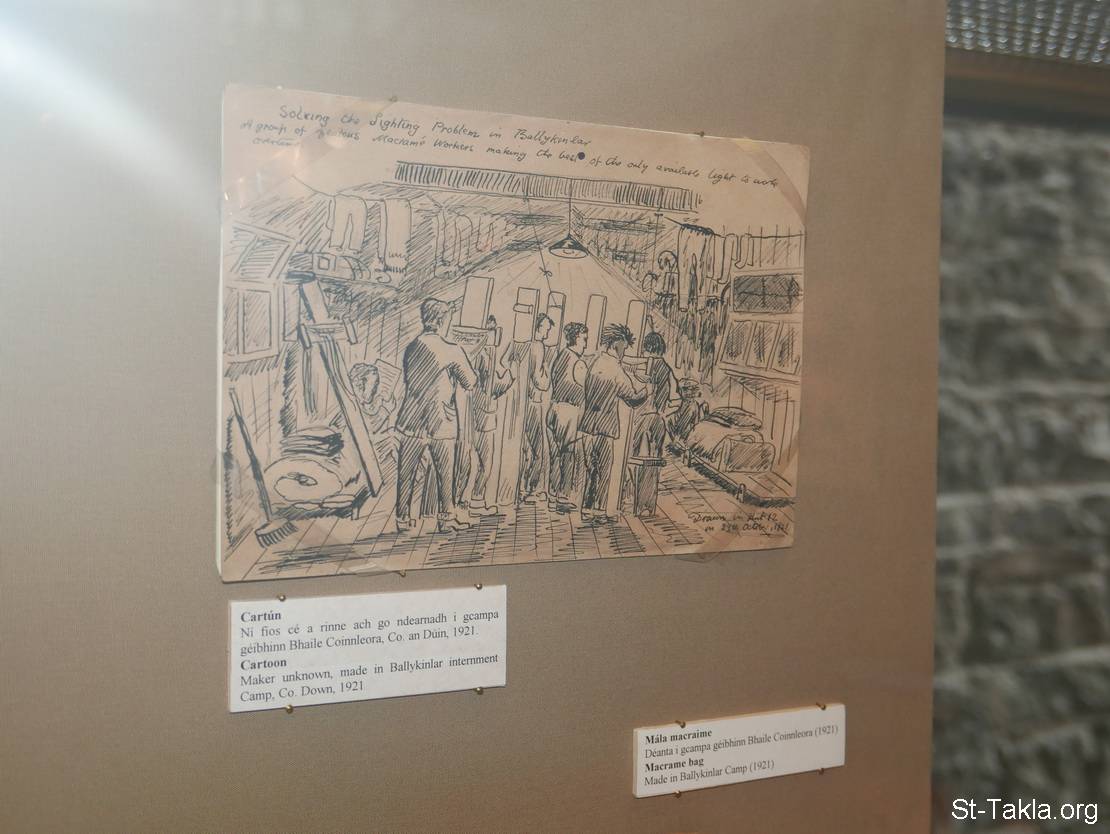 Solving the Lighting Problem in Ballykinlar
A group of Macramé Workers making the best of the only available light to work
overtime
Drawn in Hut 12
on 23rd Octbr 1921
Cartún
Ní fios cé a rinne ach go ndearnadh i gcampa
géibhinn Bhaile Coinnleora, Co. an Dúin, 1921.
Cartoon
Maker unknown, made in Ballykinlar internment
Camp, Co. Down, 1921
Mála macraime
Déanta i gcampa géibhinn Bhaile Coinnleora (1921)
Macrame bag
Made in Ballykinlar Camp (1921)
St-Takla.org